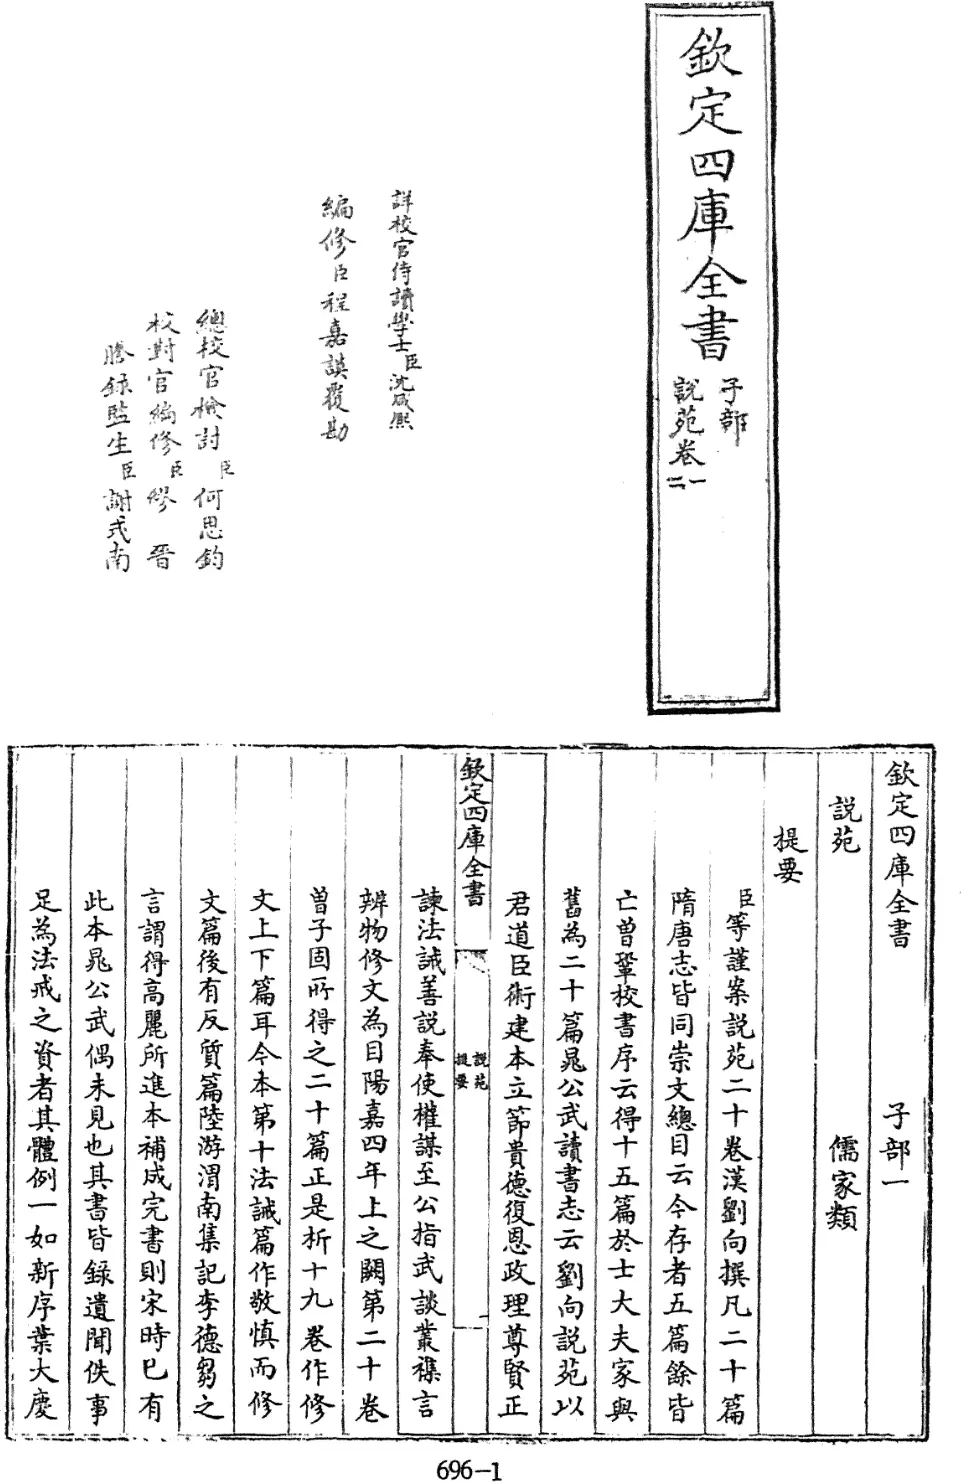 欽定四庫全書
子部
說苑卷一
二
詳校官侍讀學士臣沈咸熙
編修臣程嘉謨覆勘
總校官檢討臣何思鈞
校對官編修臣繆晉
謄錄監生臣謝式南
欽定四庫全書 子部一
說苑 儒家類
提要
臣等謹案說苑二十卷漢劉向撰凡二十篇
隋唐志皆同崇文總目云今存者五篇餘皆
亡曾鞏校書序云得十五篇於士大夫家與
舊為二十篇晁公武讀書志云劉向說苑以
君道臣術建本立節貴德復恩政理尊賢正
欽定四庫全書
說苑
提要
一
諫法誡善說奉使權謀至公指武談叢襍言
辨物修文為目陽嘉四年上之闕第二十卷
曾子固所得之二十篇正是析十九卷作修
文上下篇耳今本第十法誡篇作敬慎而修
文篇後有反質篇陸游渭南集記李德芻之
言謂得高麗所進本補成完書則宋時已有
此本晁公武偶未見也其書皆錄遺聞佚事
足為法戒之資者其體例一如新序葉大慶
696-1